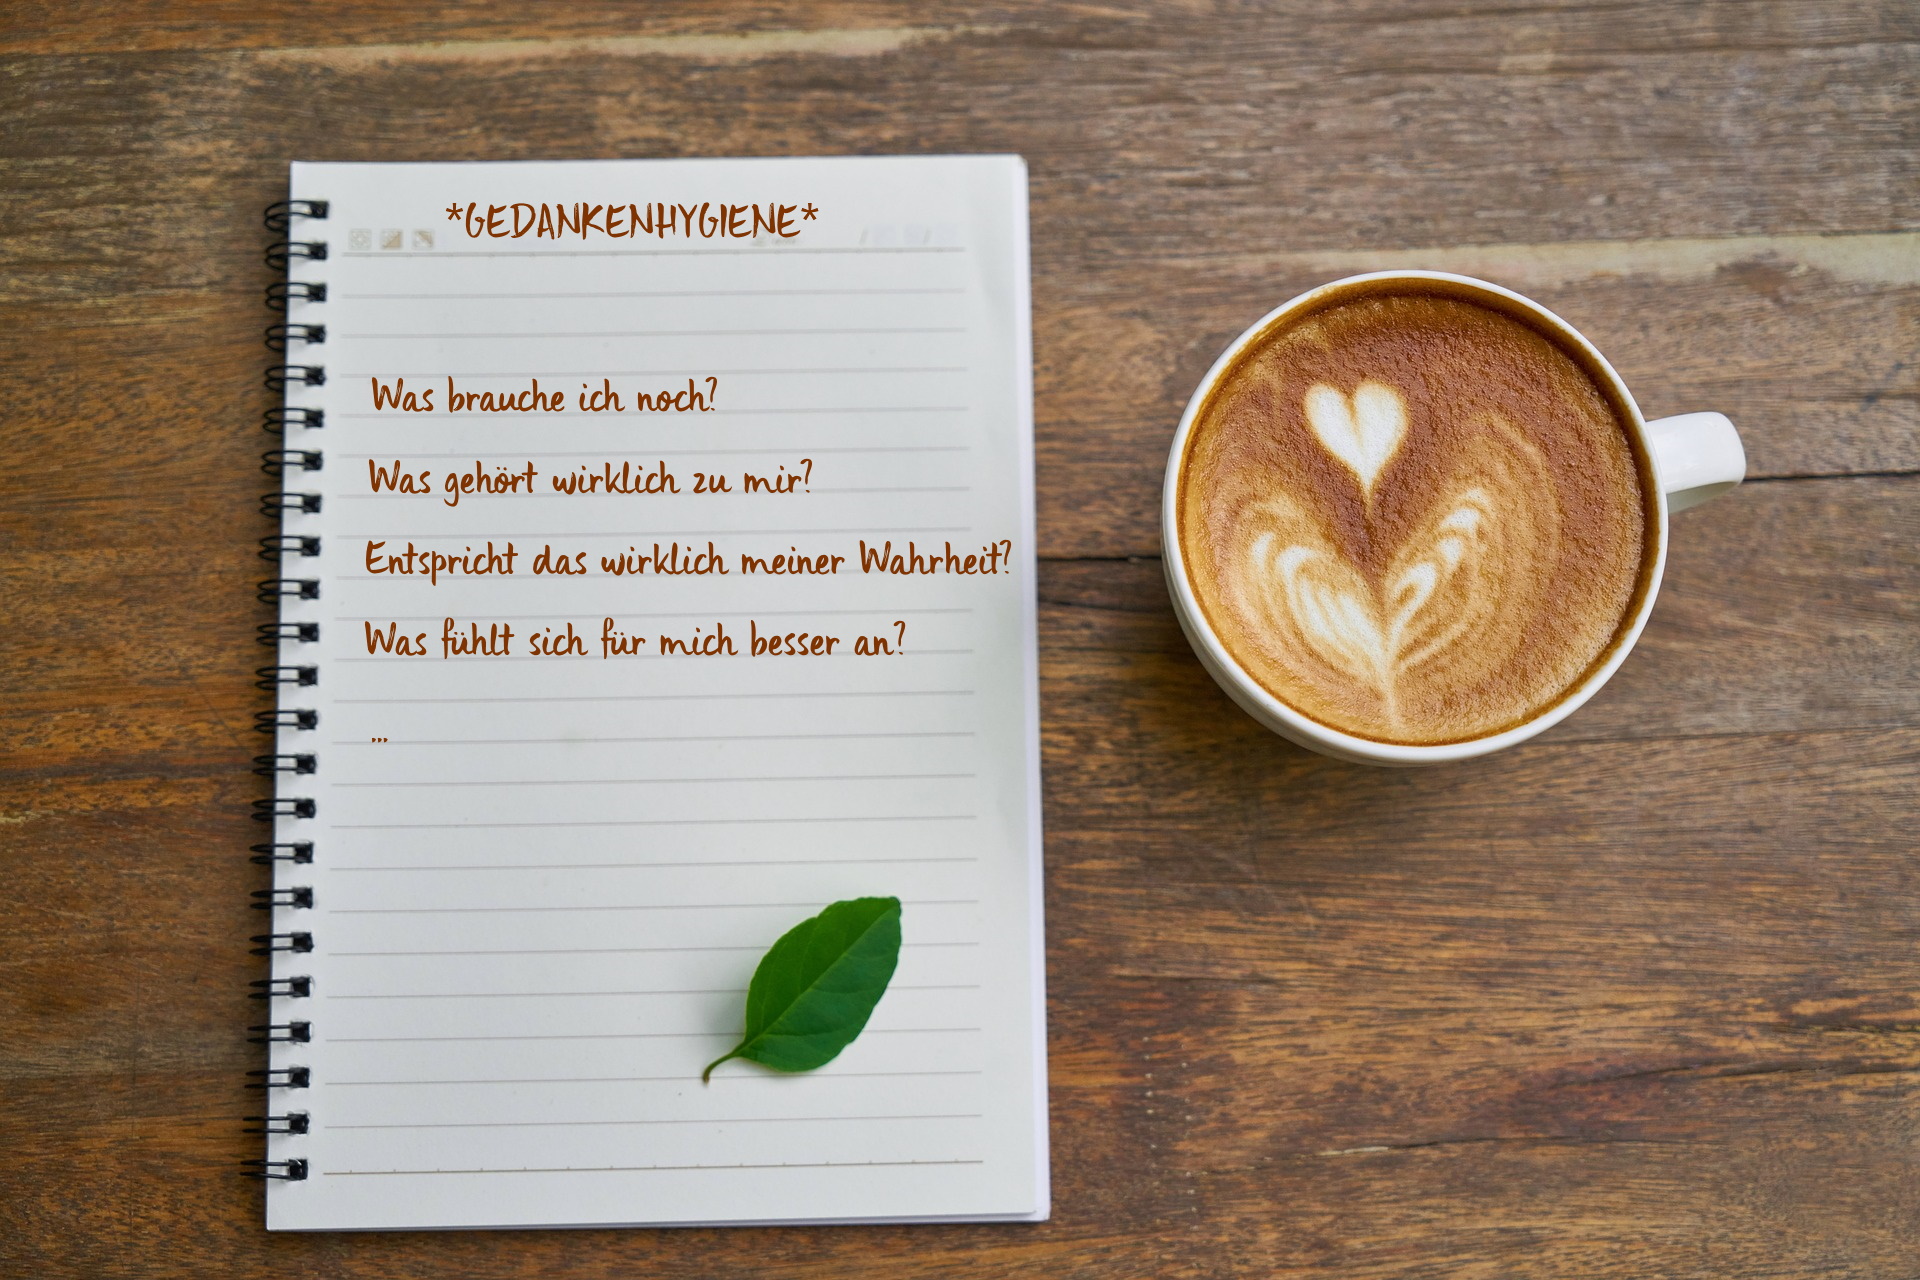 *GEDANKENHYGIENE*
Was brauche ich noch?
Was gehört wirklich zu mir?
Entspricht das wirklich meiner Wahrheit?
Was fühlt sich für mich besser an?
...